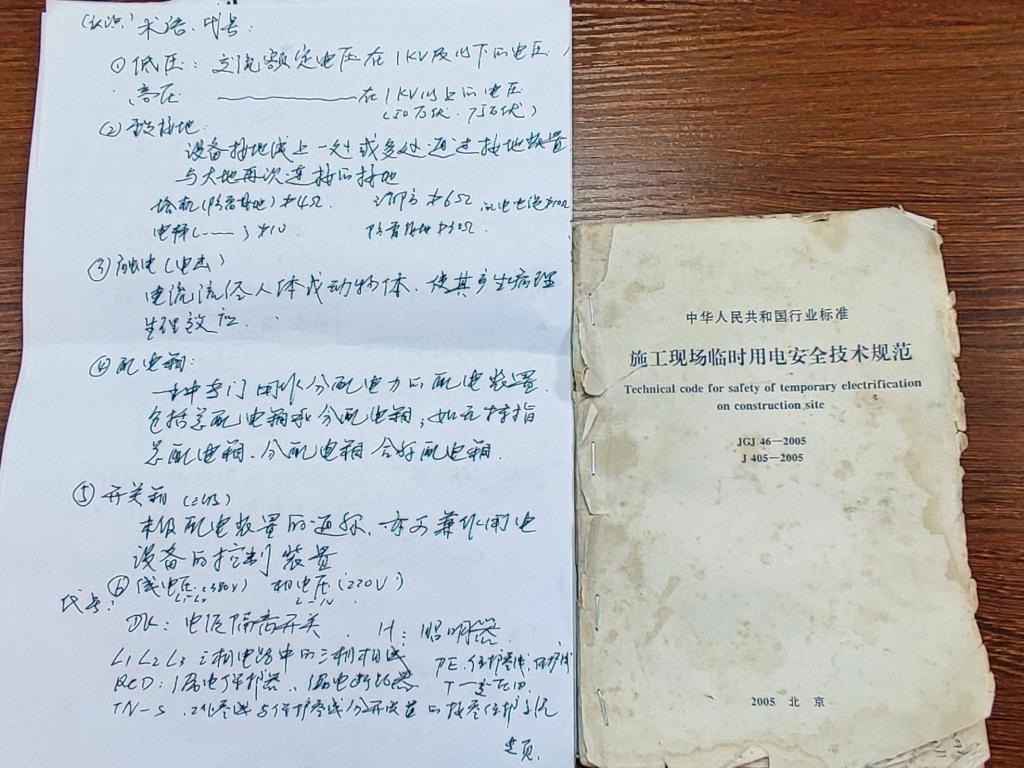 术语、代号:
① 低压: 交流额定电压在1KV及以下的电压
高压 ——在1KV以上的电压
(50万伏、75万伏)
② 重复接地:
设备接地线上一处或多处通过接地装置
与大地再次连接的接地
塔机(防雷接地)≯4Ω.
电梯(——)≯10
③ 触电(电击)
电流流经人体或动物体、使其产生病理
生理效应.
④ 配电箱:
一种专门用作分配电力的配电装置
包括总配电箱和分配电箱,如无特指
总配电箱、分配电箱合称配电箱.
⑤ 开关箱(三级)
末级配电装置的通称、亦可兼作用电
设备的控制装置
⑥ 线电压(380V) 相电压(220V)
L-L L-N
代号:
DK: 电源隔离开关 H: 照明器
L1 L2 L3 三相电路中的三相相线
RCD: 漏电保护器、漏电断路器
TN-S 工作零线与保护零线分开设置的接零保护系统
中华人民共和国行业标准
施工现场临时用电安全技术规范
Technical code for safety of temporary electrification
on construction site
JGJ 46—2005
J 405—2005
2005 北 京